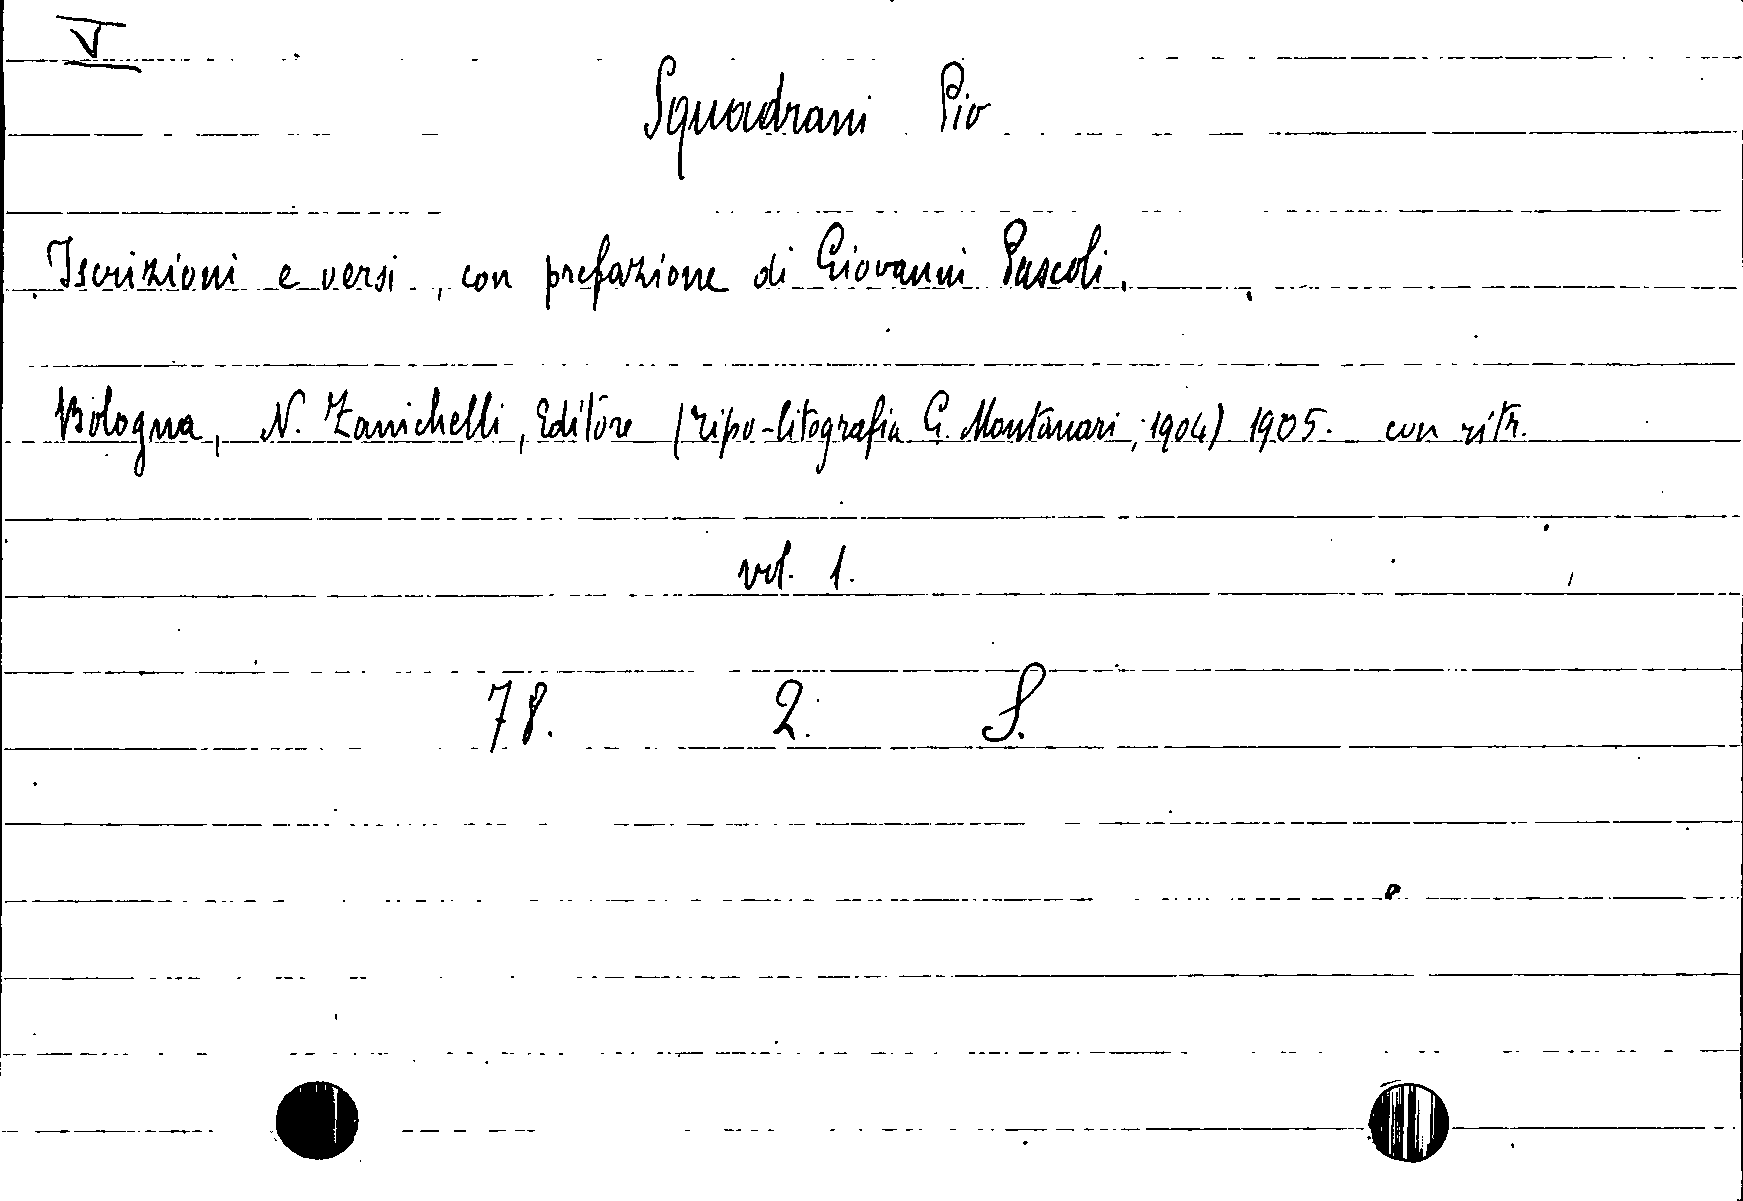 V
Squadrani Pio
Iscrizioni e versi, con prefazione di Giovanni Pascoli.
Bologna, N. Zanichelli, Editore (Tipo-litografia G. Montanari, 1904) 1905. con ritr.
vol. 1.
78. 2. S.